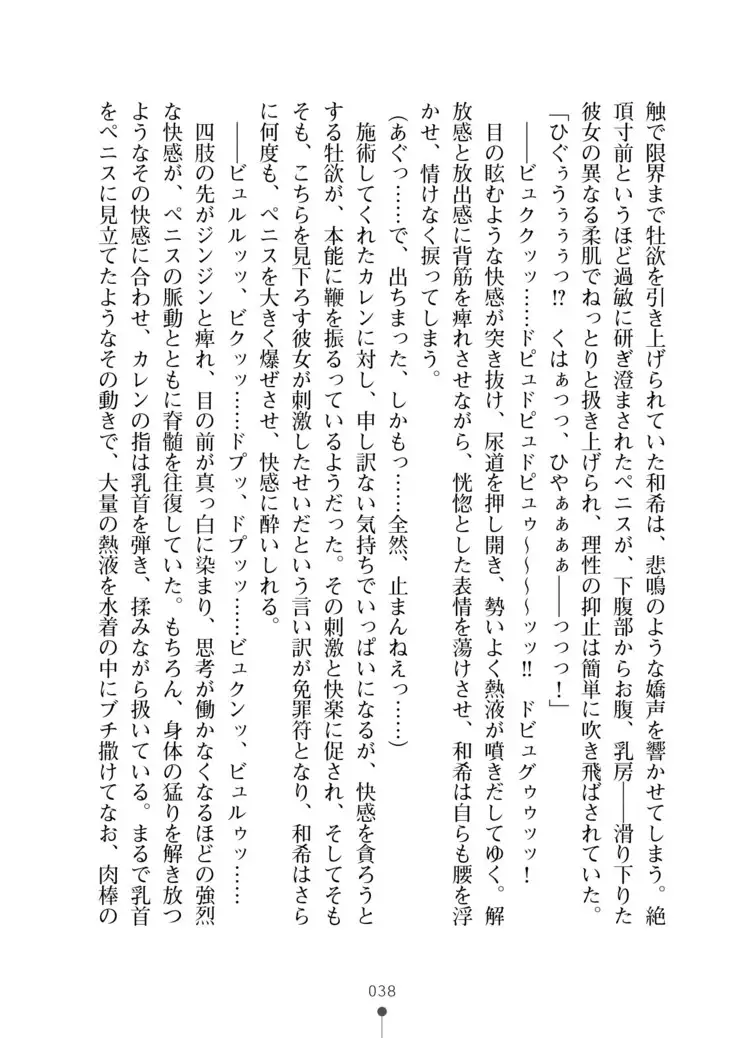 触で限界まで牡欲を引き上げられていた和希は、悲鳴のような嬌声を響かせてしまう。絶
頂寸前というほど過敏に研ぎ澄まされたペニスが、下腹部からお腹、乳房――滑り下りた
彼女の異なる柔肌でねっとりと扱き上げられ、理性の抑止は簡単に吹き飛ばされていた。
「ひぐぅうぅぅぅっ!?　くはぁっっ、ひやぁぁぁぁ――っっっ！」
――ビュククッッ……ドピュドピュドピュゥ～～～～ッッ!!　ドビュグゥゥッッ！
目の眩むような快感が突き抜け、尿道を押し開き、勢いよく熱液が噴きだしてゆく。解
放感と放出感に背筋を痺れさせながら、恍惚とした表情を蕩けさせ、和希は自らも腰を浮
かせ、情けなく捩ってしまう。
（あぐっ……で、出ちまった、しかもっ……全然、止まんねえっ……）
施術してくれたカレンに対し、申し訳ない気持ちでいっぱいになるが、快感を貪ろうと
する牡欲が、本能に鞭を振るっているようだった。その刺激と快楽に促され、そしてそも
そも、こちらを見下ろす彼女が刺激したせいだという言い訳が免罪符となり、和希はさら
に何度も、ペニスを大きく爆ぜさせ、快感に酔いしれる。
――ビュルルッッ、ビクッッ……ドプッ、ドプッッ……ビュクンッ、ビュルゥッ……
四肢の先がジンジンと痺れ、目の前が真っ白に染まり、思考が働かなくなるほどの強烈
な快感が、ペニスの脈動とともに脊髄を往復していた。もちろん、身体の猛りを解き放つ
ようなその快感に合わせ、カレンの指は乳首を弾き、揉みながら扱いている。まるで乳首
をペニスに見立てたようなその動きで、大量の熱液を水着の中にブチ撒けてなお、肉棒の
038